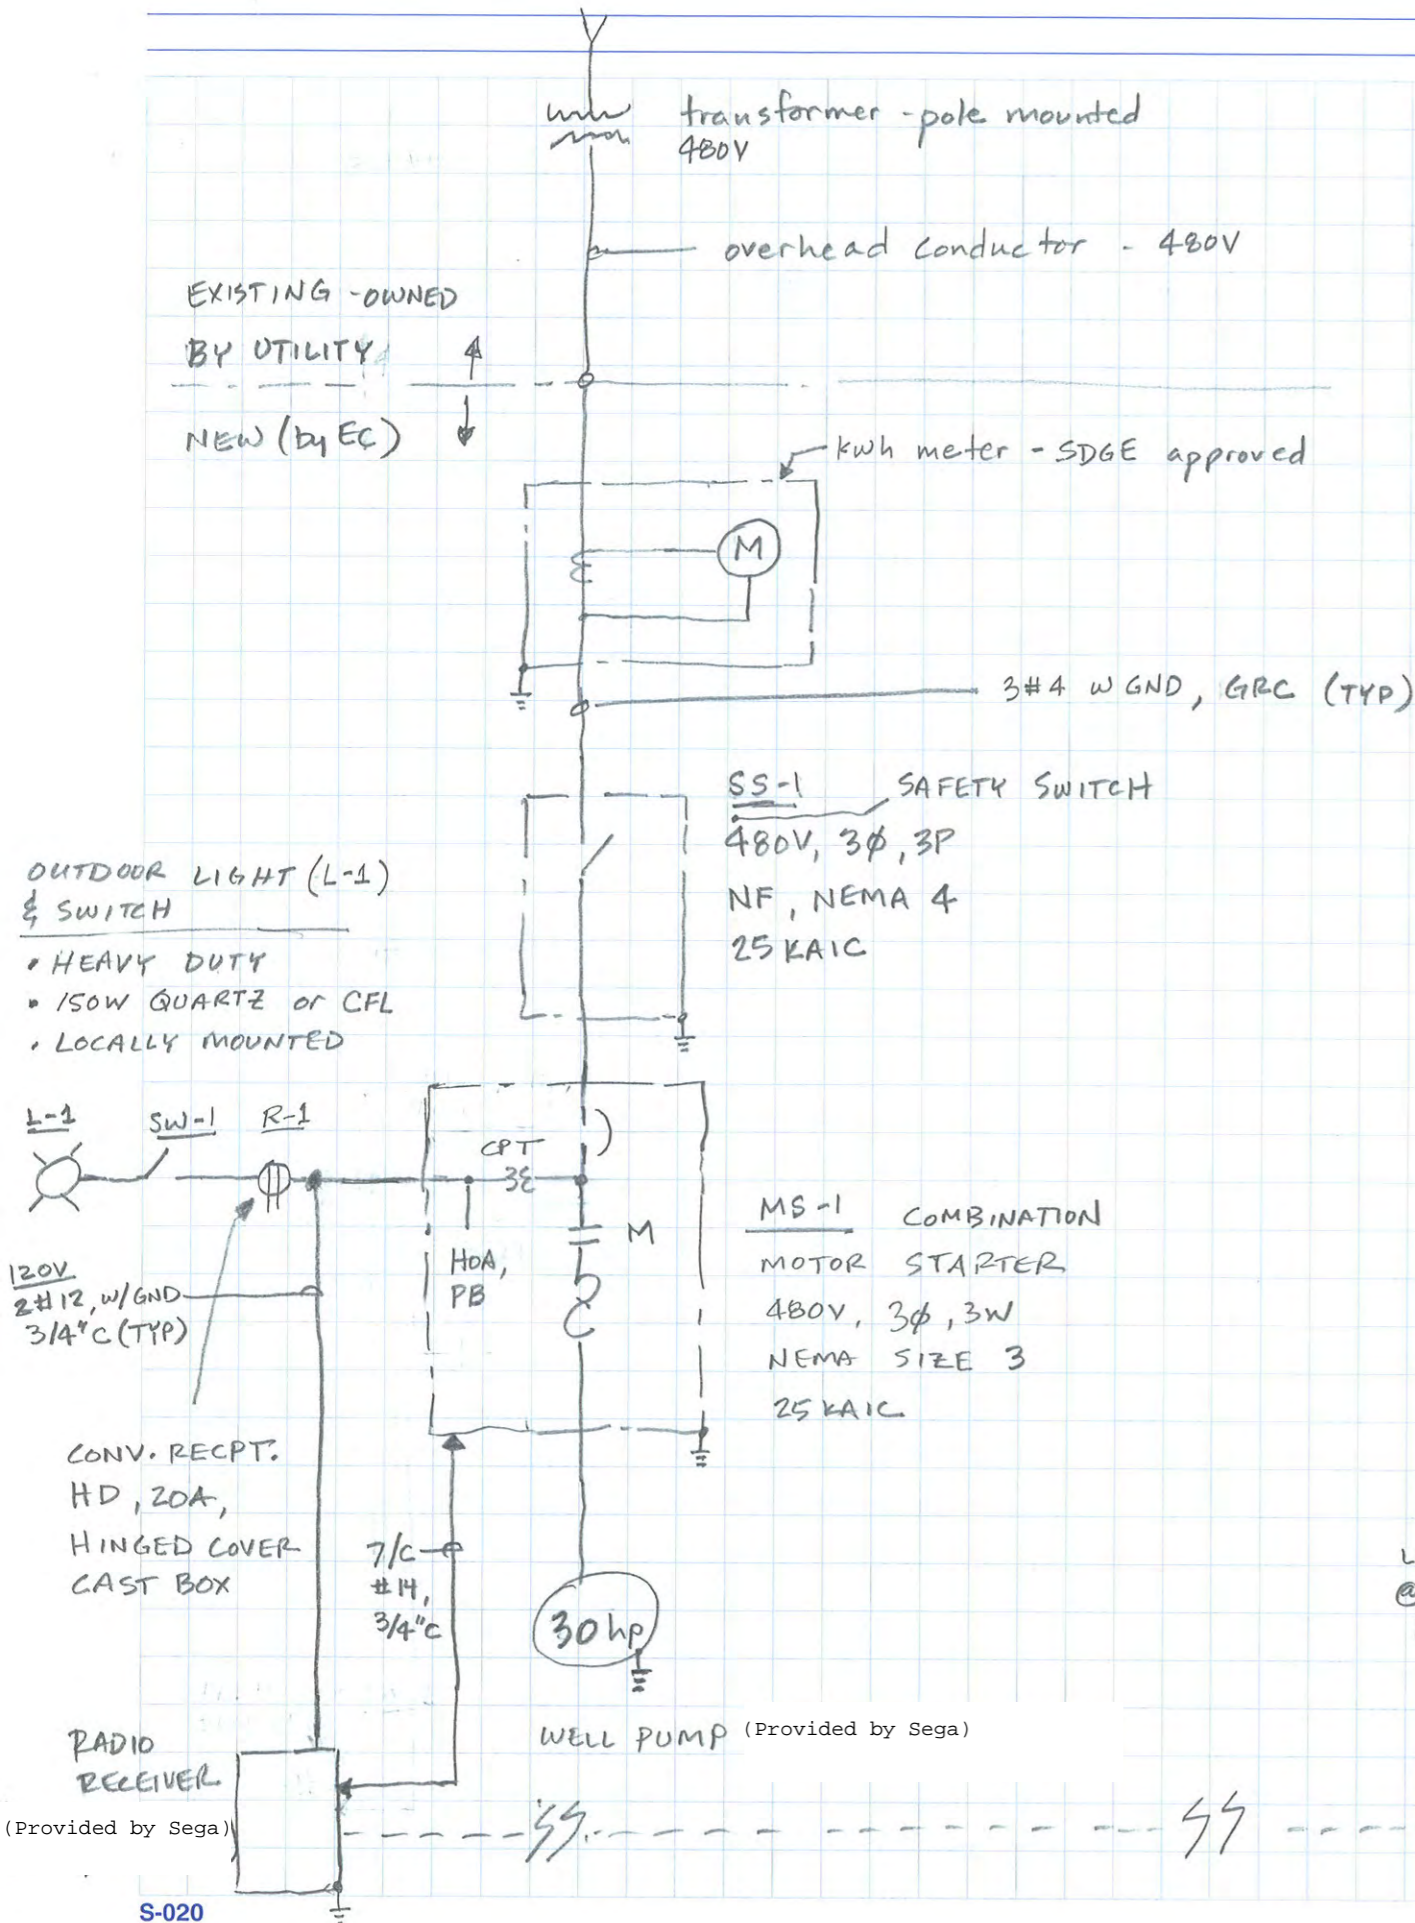 transformer - pole mounted
480V
overhead conductor - 480V
EXISTING - OWNED
BY UTILITY
NEW (by EC)
kwh meter - SDGE approved
M
3#4 W GND, GRC (TYP)
SS-1 SAFETY SWITCH
480V, 3ϕ, 3P
NF, NEMA 4
25 KAIC
OUTDOOR LIGHT (L-1)
& SWITCH
• HEAVY DUTY
• 150W QUARTZ or CFL
• LOCALLY MOUNTED
L-1 SW-1 R-1
CPT
M
HOA,
PB
120V
2#12, W/GND
3/4"C (TYP)
MS-1 COMBINATION
MOTOR STARTER
480V, 3ϕ, 3W
NEMA SIZE 3
25 KAIC
CONV. RECPT.
HD, 20A,
HINGED COVER
CAST BOX
7/C
#14,
3/4"C
L
@
30 hp
WELL PUMP (Provided by Sega)
RADIO
RECEIVER
(Provided by Sega)
S-020